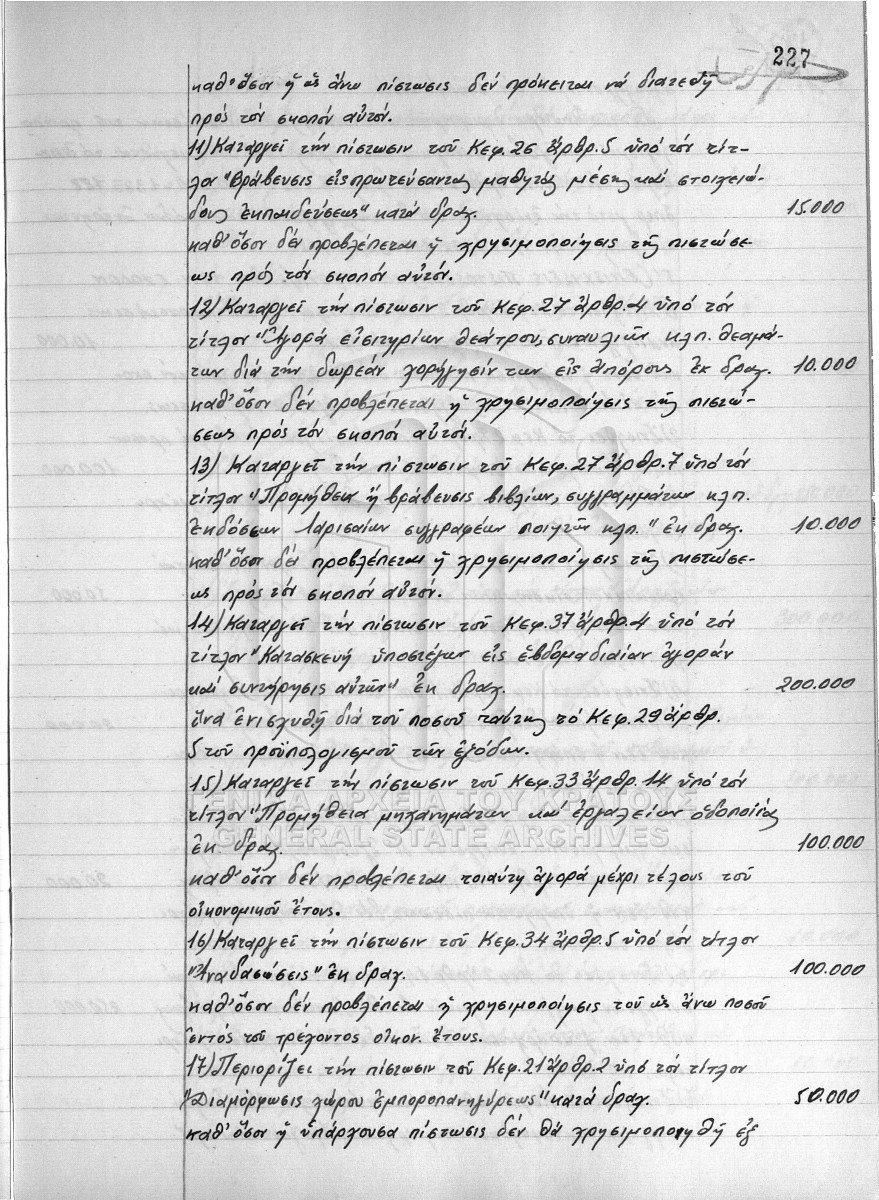 227
καθ' ὅσον ἡ ὡς ἄνω πίστωσις δέν πρόκειται νά διατεθῇ
πρός τόν σκοπόν αὐτόν.
11) Καταργεῖ τήν πίστωσιν τοῦ Κεφ. 26 ἄρθρ. 5 ὑπό τόν τίτ-
λον "Βράβευσις εἰς πρωτεύσαντας μαθητάς μέσης καί στοιχειώ-
δους ἐκπαιδεύσεως" κατά δραχ. 15.000
καθ' ὅσον δέν προβλέπεται ἡ χρησιμοποίησις τῆς πιστώσε-
ως πρός τόν σκοπόν αὐτόν.
12) Καταργεῖ τήν πίστωσιν τοῦ Κεφ. 27 ἄρθρ. 4 ὑπό τόν
τίτλον "Ἀγορά εἰσιτηρίων θεάτρου, συναυλιῶν κλπ. θεαμά-
των διά τήν δωρεάν χορήγησίν των εἰς ἀπόρους ἐκ δραχ. 10.000
καθ' ὅσον δέν προβλέπεται ἡ χρησιμοποίησις τῆς πιστώ-
σεως πρός τόν σκοπόν αὐτόν.
13) Καταργεῖ τήν πίστωσιν τοῦ Κεφ. 27 ἄρθρ. 7 ὑπό τόν
τίτλον "Προμήθεια ἤ βράβευσις βιβλίων, συγγραμμάτων κλπ.
ἐκδόσεων Λαρισαίων συγγραφέων ποιητῶν κλπ." ἐκ δραχ. 10.000
καθ' ὅσον δέν προβλέπεται ἡ χρησιμοποίησις τῆς πιστώσε-
ως πρός τόν σκοπόν αὐτόν.
14) Καταργεῖ τήν πίστωσιν τοῦ Κεφ. 37 ἄρθρ. 4 ὑπό τόν
τίτλον "Κατασκευή ὑποστέγων εἰς ἑβδομαδιαίαν ἀγοράν
καί συντήρησις αὐτῶν" ἐκ δραχ. 200.000
ἵνα ἐνισχυθῇ διά τοῦ ποσοῦ ταύτης τό Κεφ. 29 ἄρθρ.
5 τοῦ προϋπολογισμοῦ τῶν ἐξόδων.
15) Καταργεῖ τήν πίστωσιν τοῦ Κεφ. 33 ἄρθρ. 14 ὑπό τόν
ΓΕΝΙΚΑ ΑΡΧΕΙΑ ΤΟΥ ΚΡΑΤΟΥΣ
τίτλον "Προμήθεια μηχανημάτων καί ἐργαλείων ὁδοποιίας
GENERAL STATE ARCHIVES
ἐκ δραχ. 100.000
καθ' ὅσον δέν προβλέπεται τοιαύτη ἀγορά μέχρι τέλους τοῦ
οἰκονομικοῦ ἔτους.
16) Καταργεῖ τήν πίστωσιν τοῦ Κεφ. 34 ἄρθρ. 5 ὑπό τόν τίτλον
"Ἀναδασώσεις" ἐκ δραχ. 100.000
καθ' ὅσον δέν προβλέπεται ἡ χρησιμοποίησις τοῦ ὡς ἄνω ποσοῦ
ἐντός τοῦ τρέχοντος οἰκον. ἔτους.
17) Περιορίζει τήν πίστωσιν τοῦ Κεφ. 21 ἄρθρ. 2 ὑπό τόν τίτλον
"Διαμόρφωσις χώρου ἐμποροπανηγύρεως" κατά δραχ. 50.000
καθ' ὅσον ἡ ὑπάρχουσα πίστωσις δέν θά χρησιμοποιηθῇ ἐξ